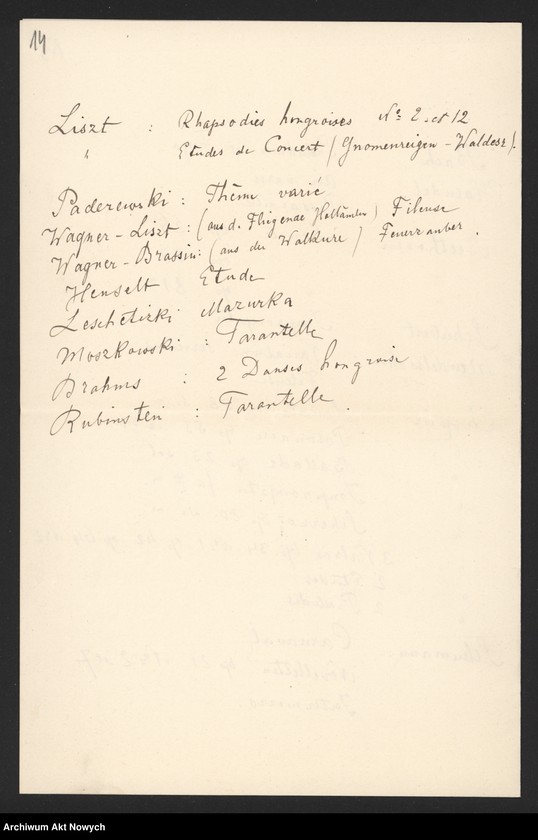 14
Liszt : Rhapsodies hongroises No 2 et 12
" Etudes de Concert (Gnomenreigen - Waldesr).
Paderewski : Thème varié
Wagner - Liszt : (aus d. Fliegende Holländer) Fileuse
Wagner - Brassin : (aus der Walküre) Feuerzauber.
Henselt Etude
Leschetizki Mazurka
Moszkowski : Tarantelle
Brahms : 2 Danses hongroise
Rubinstein : Tarantelle.
Archiwum Akt Nowych